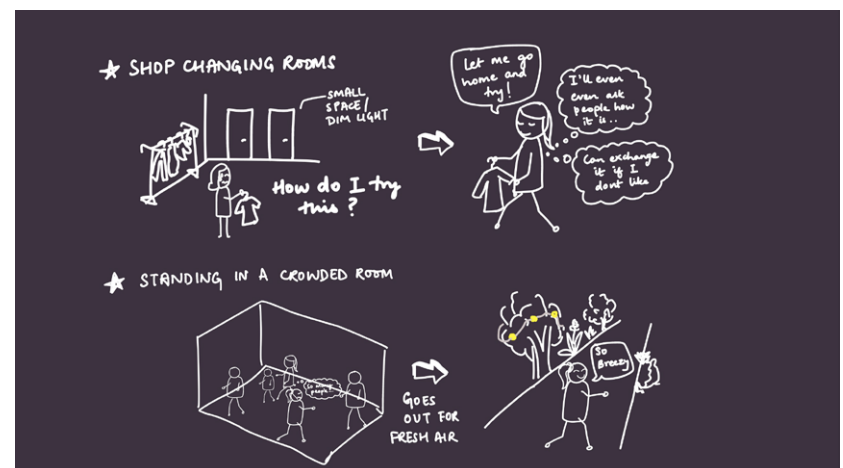 SHOP CHANGING ROOMS
SMALL
SPACE/
DIM LIGHT
How do I try
this?
Let me go
home and
try!
I'll even
even ask
people how
it is..
Can exchange
it if I
dont like
STANDING IN A CROWDED ROOM
So many
people!
GOES
OUT FOR
FRESH AIR
So
Breezy